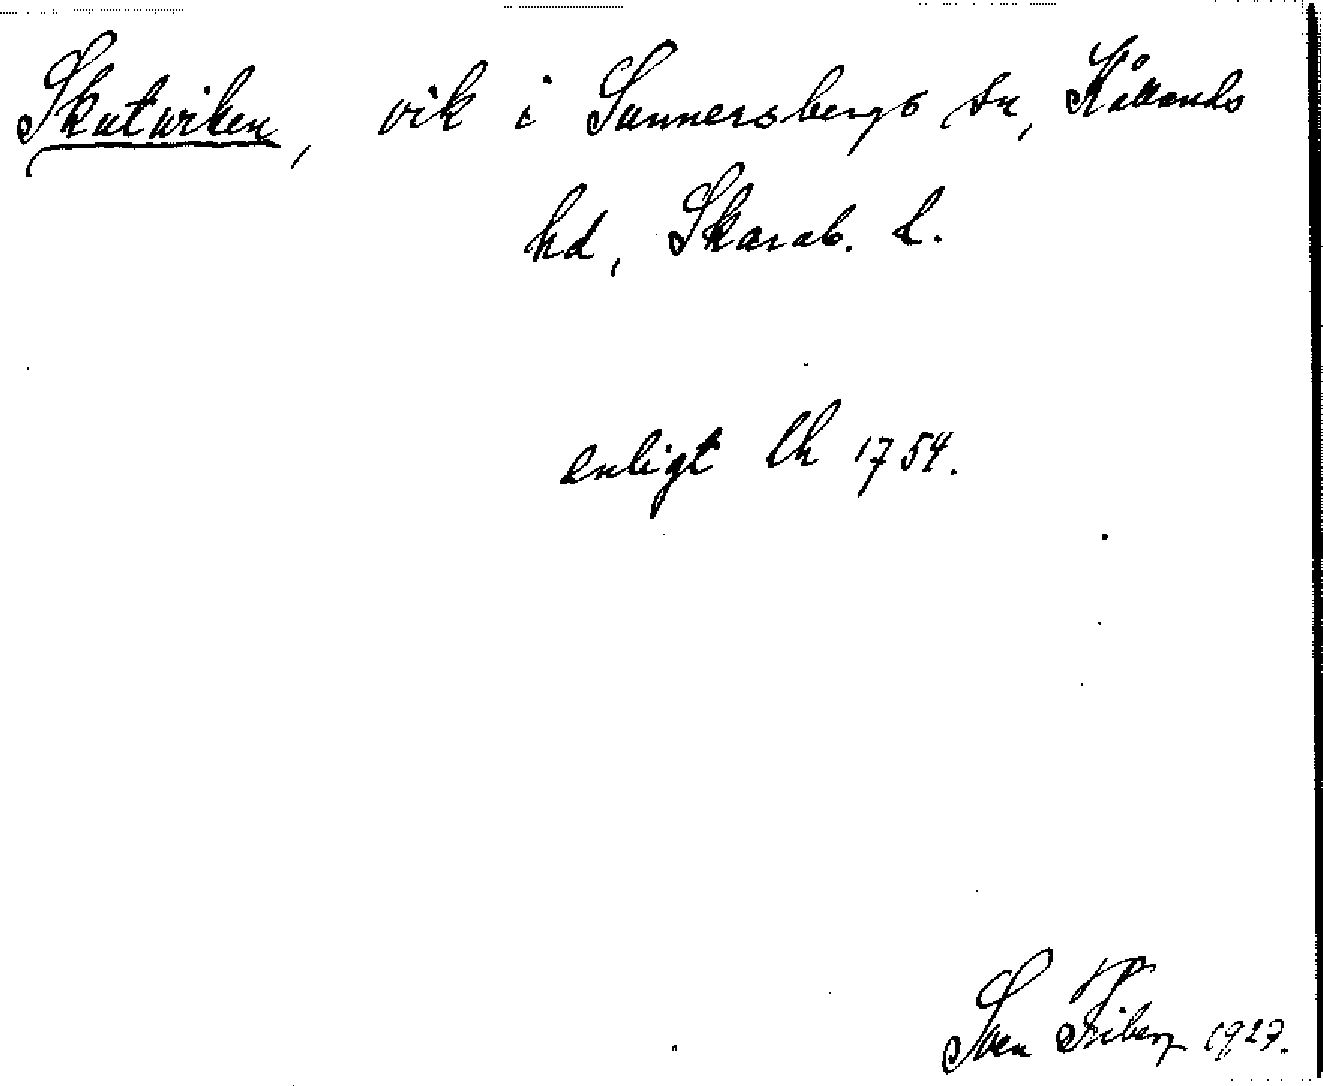 Skutviken, vik i Sunnersbergs sn, Kållands
hd, Skarab. L.
enligt Lk 1754.
Sven Friberg 1927.